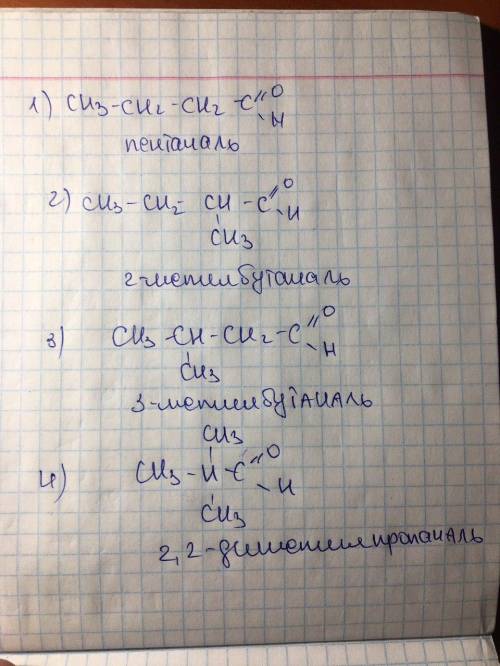 1) CH3-CH2-CH2-C=O
H
пентаналь
2) CH3-CH2-CH-C=O
H
CH3
2-метилбутаналь
3) CH3-CH-CH2-C=O
H
CH3
3-метилбутАНАЛЬ
CH3
4) CH3-H-C=O
H
CH3
2,2-диметилпропанАЛЬ